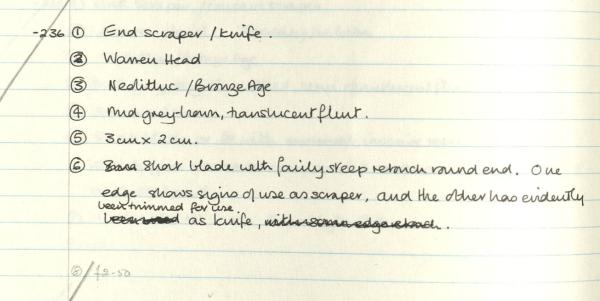 -236 ① End scraper / knife.
② Warren Head
③ Neolithic / Bronze Age
④ Mid grey-brown, translucent flint.
⑤ 3cm x 2cm.
⑥ Short blade with fairly steep retouch round end. One
edge shows signs of use as scraper, and the other has evidently
been trimmed for use
as knife,
⑧ £2-50